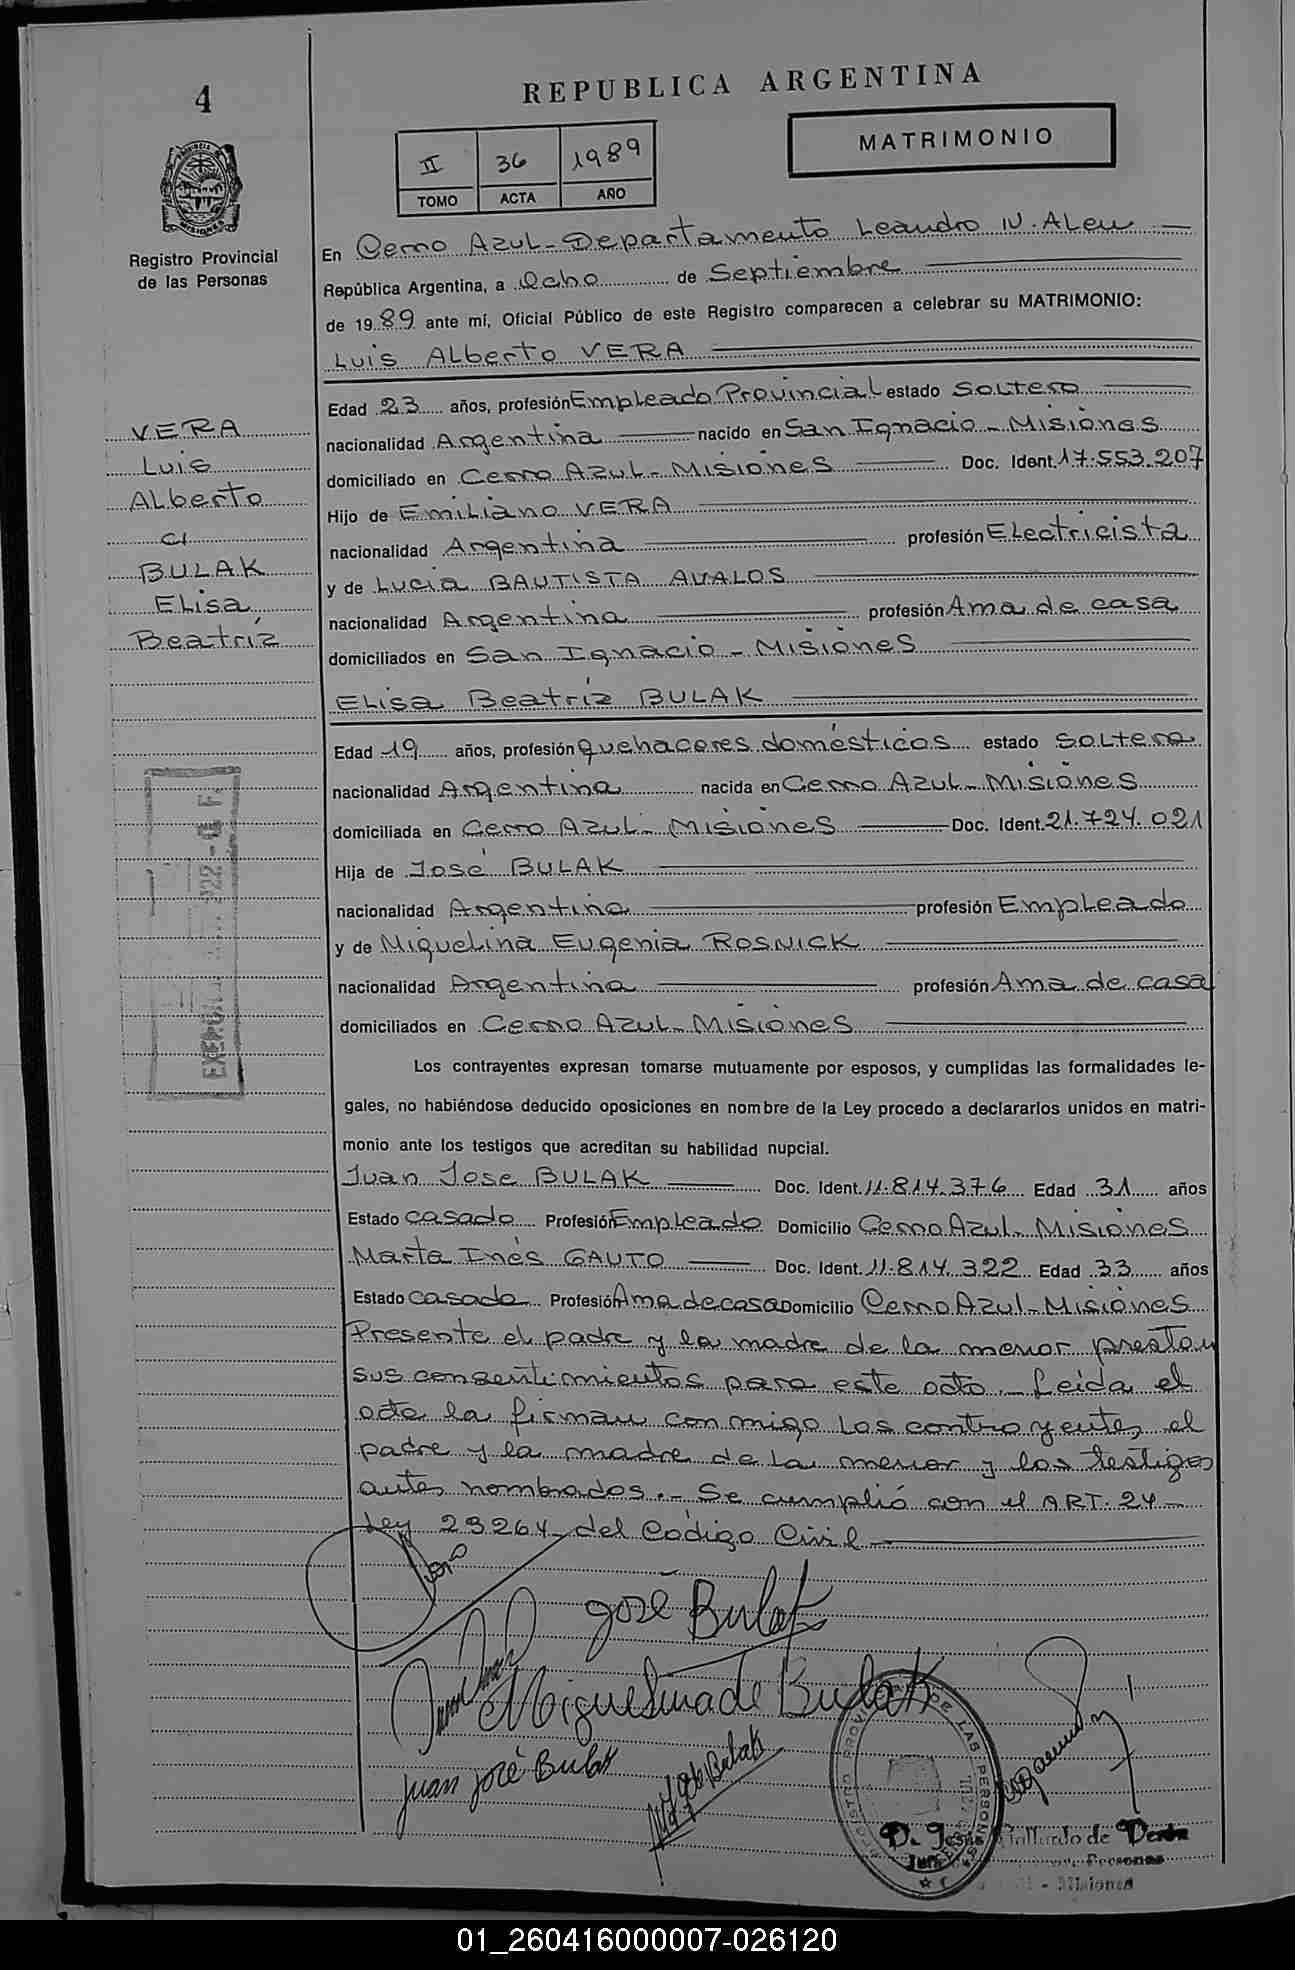 4
REPUBLICA ARGENTINA
MATRIMONIO
II 36 1989
TOMO ACTA AÑO
PROVINCIA DE MISIONES
Registro Provincial
de las Personas
En Cerro Azul - Departamento Leandro N. Alem
República Argentina, a Ocho de Septiembre
de 1989 ante mí, Oficial Público de este Registro comparecen a celebrar su MATRIMONIO:
Luis Alberto VERA
Edad 23 años, profesión Empleado Provincial estado Soltero
nacionalidad Argentina nacido en San Ignacio - Misiones
domiciliado en Cerro Azul - Misiones Doc. Ident. 17.553.207
Hijo de Emiliano VERA
nacionalidad Argentina profesión Electricista
y de Lucia BAUTISTA AVALOS
nacionalidad Argentina profesión Ama de casa
domiciliados en San Ignacio - Misiones
VERA
Luis
Alberto
c/
BULAK
Elisa
Beatríz
Elisa Beatríz BULAK
Edad 19 años, profesión quehaceres domésticos estado Soltera
nacionalidad Argentina nacida en Cerro Azul - Misiones
domiciliada en Cerro Azul - Misiones Doc. Ident. 21.724.021
Hija de José BULAK
nacionalidad Argentina profesión Empleado
y de Miguelina Eugenia ROSNICK
nacionalidad Argentina profesión Ama de casa
domiciliados en Cerro Azul - Misiones
Los contrayentes expresan tomarse mutuamente por esposos, y cumplidas las formalidades le-
gales, no habiéndose deducido oposiciones en nombre de la Ley procedo a declararlos unidos en matri-
monio ante los testigos que acreditan su habilidad nupcial.
Juan Jose BULAK Doc. Ident. 11.814.376 Edad 31 años
Estado casado Profesión Empleado Domicilio Cerro Azul - Misiones
Marta Inés GAUTO Doc. Ident. 11.814.322 Edad 33 años
Estado casada Profesión Ama de casa Domicilio Cerro Azul - Misiones
Presente el padre y la madre de la menor prestan
sus consentimientos para este acto. Leída el
acta la firman conmigo los contrayentes, el
padre y la madre de la menor y los testigos
antes nombrados.- Se cumplió con el ART. 24 -
Ley 23264 del Código Civil
José Bulak
Miguelina de Bulak
Juan José Bulak
de Bulak
de
Misiones
01_260416000007-026120